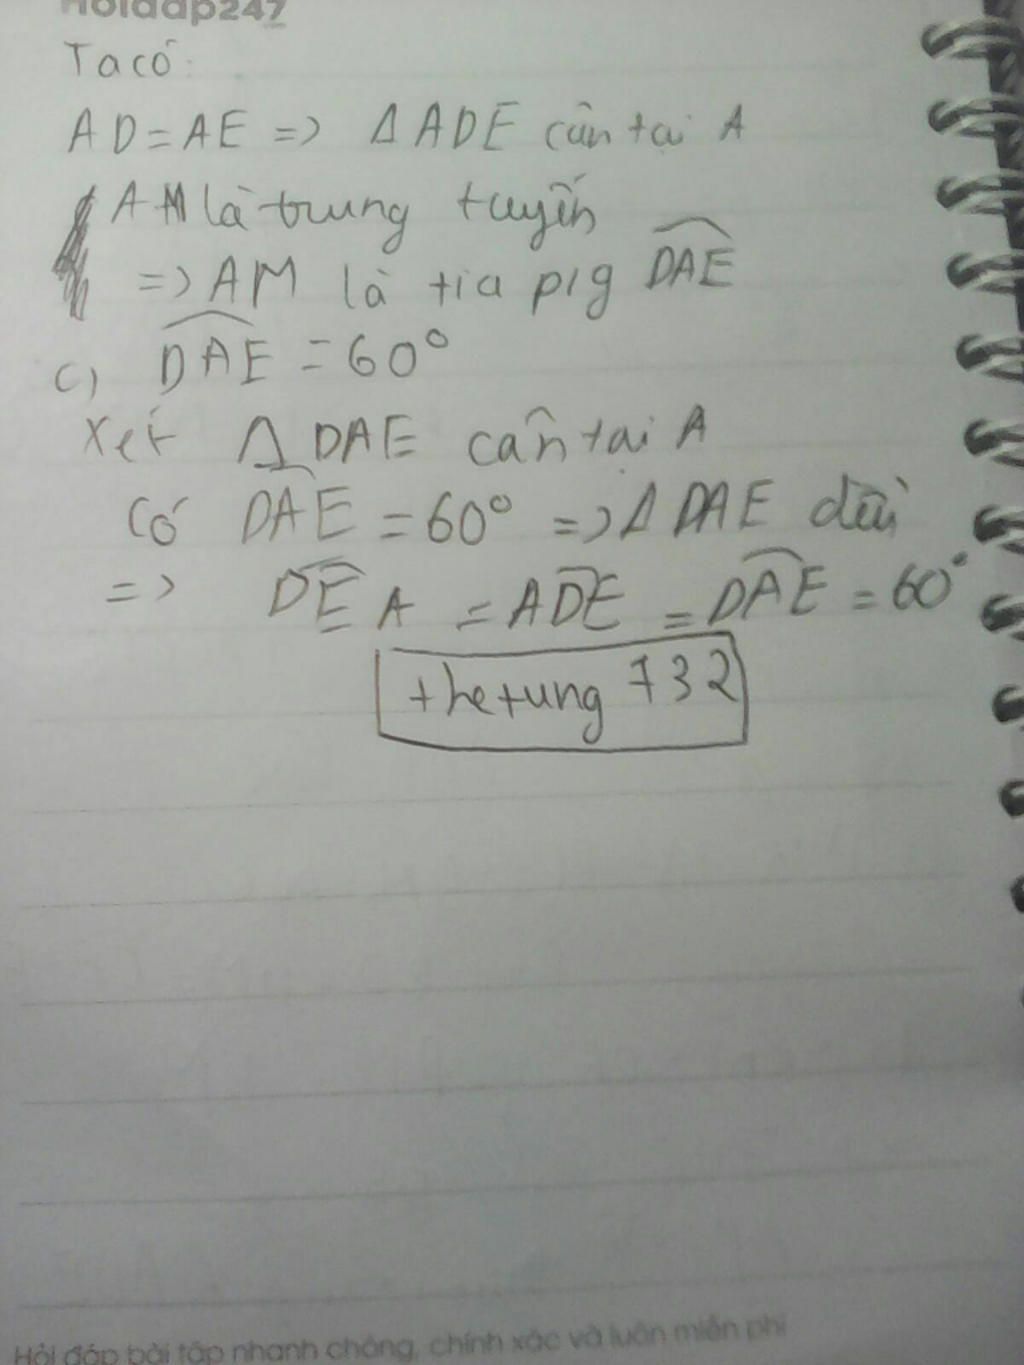 Hoidap247
Ta có:
AD = AE => Δ ADE cân tại A
AM là trung tuyến
=> AM là tia p/g DAE
c) DAE = 60°
Xét Δ DAE cân tại A
Có DAE = 60° => Δ DAE đều
=> DEA = ADE = DAE = 60°
thetung 732
Hỏi đáp bài tập nhanh chóng, chính xác và luôn miễn phí